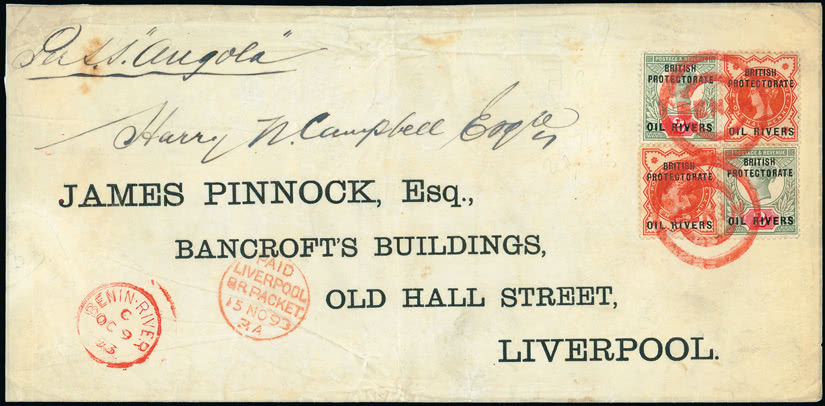 Per S.S. "Angola"
Harry N. Campbell Esqre
JAMES PINNOCK, Esq.,
BANCROFT'S BUILDINGS,
OLD HALL STREET,
LIVERPOOL.
POSTAGE & REVENUE
BRITISH
PROTECTORATE
OIL RIVERS
BRITISH
PROTECTORATE
OIL RIVERS
BRITISH
PROTECTORATE
OIL RIVERS
POSTAGE & REVENUE
BRITISH
PROTECTORATE
OIL RIVERS
BENIN·RIVER
C
OC 9
93
PAID
LIVERPOOL
BR.PACKET
15 NO 93
3A